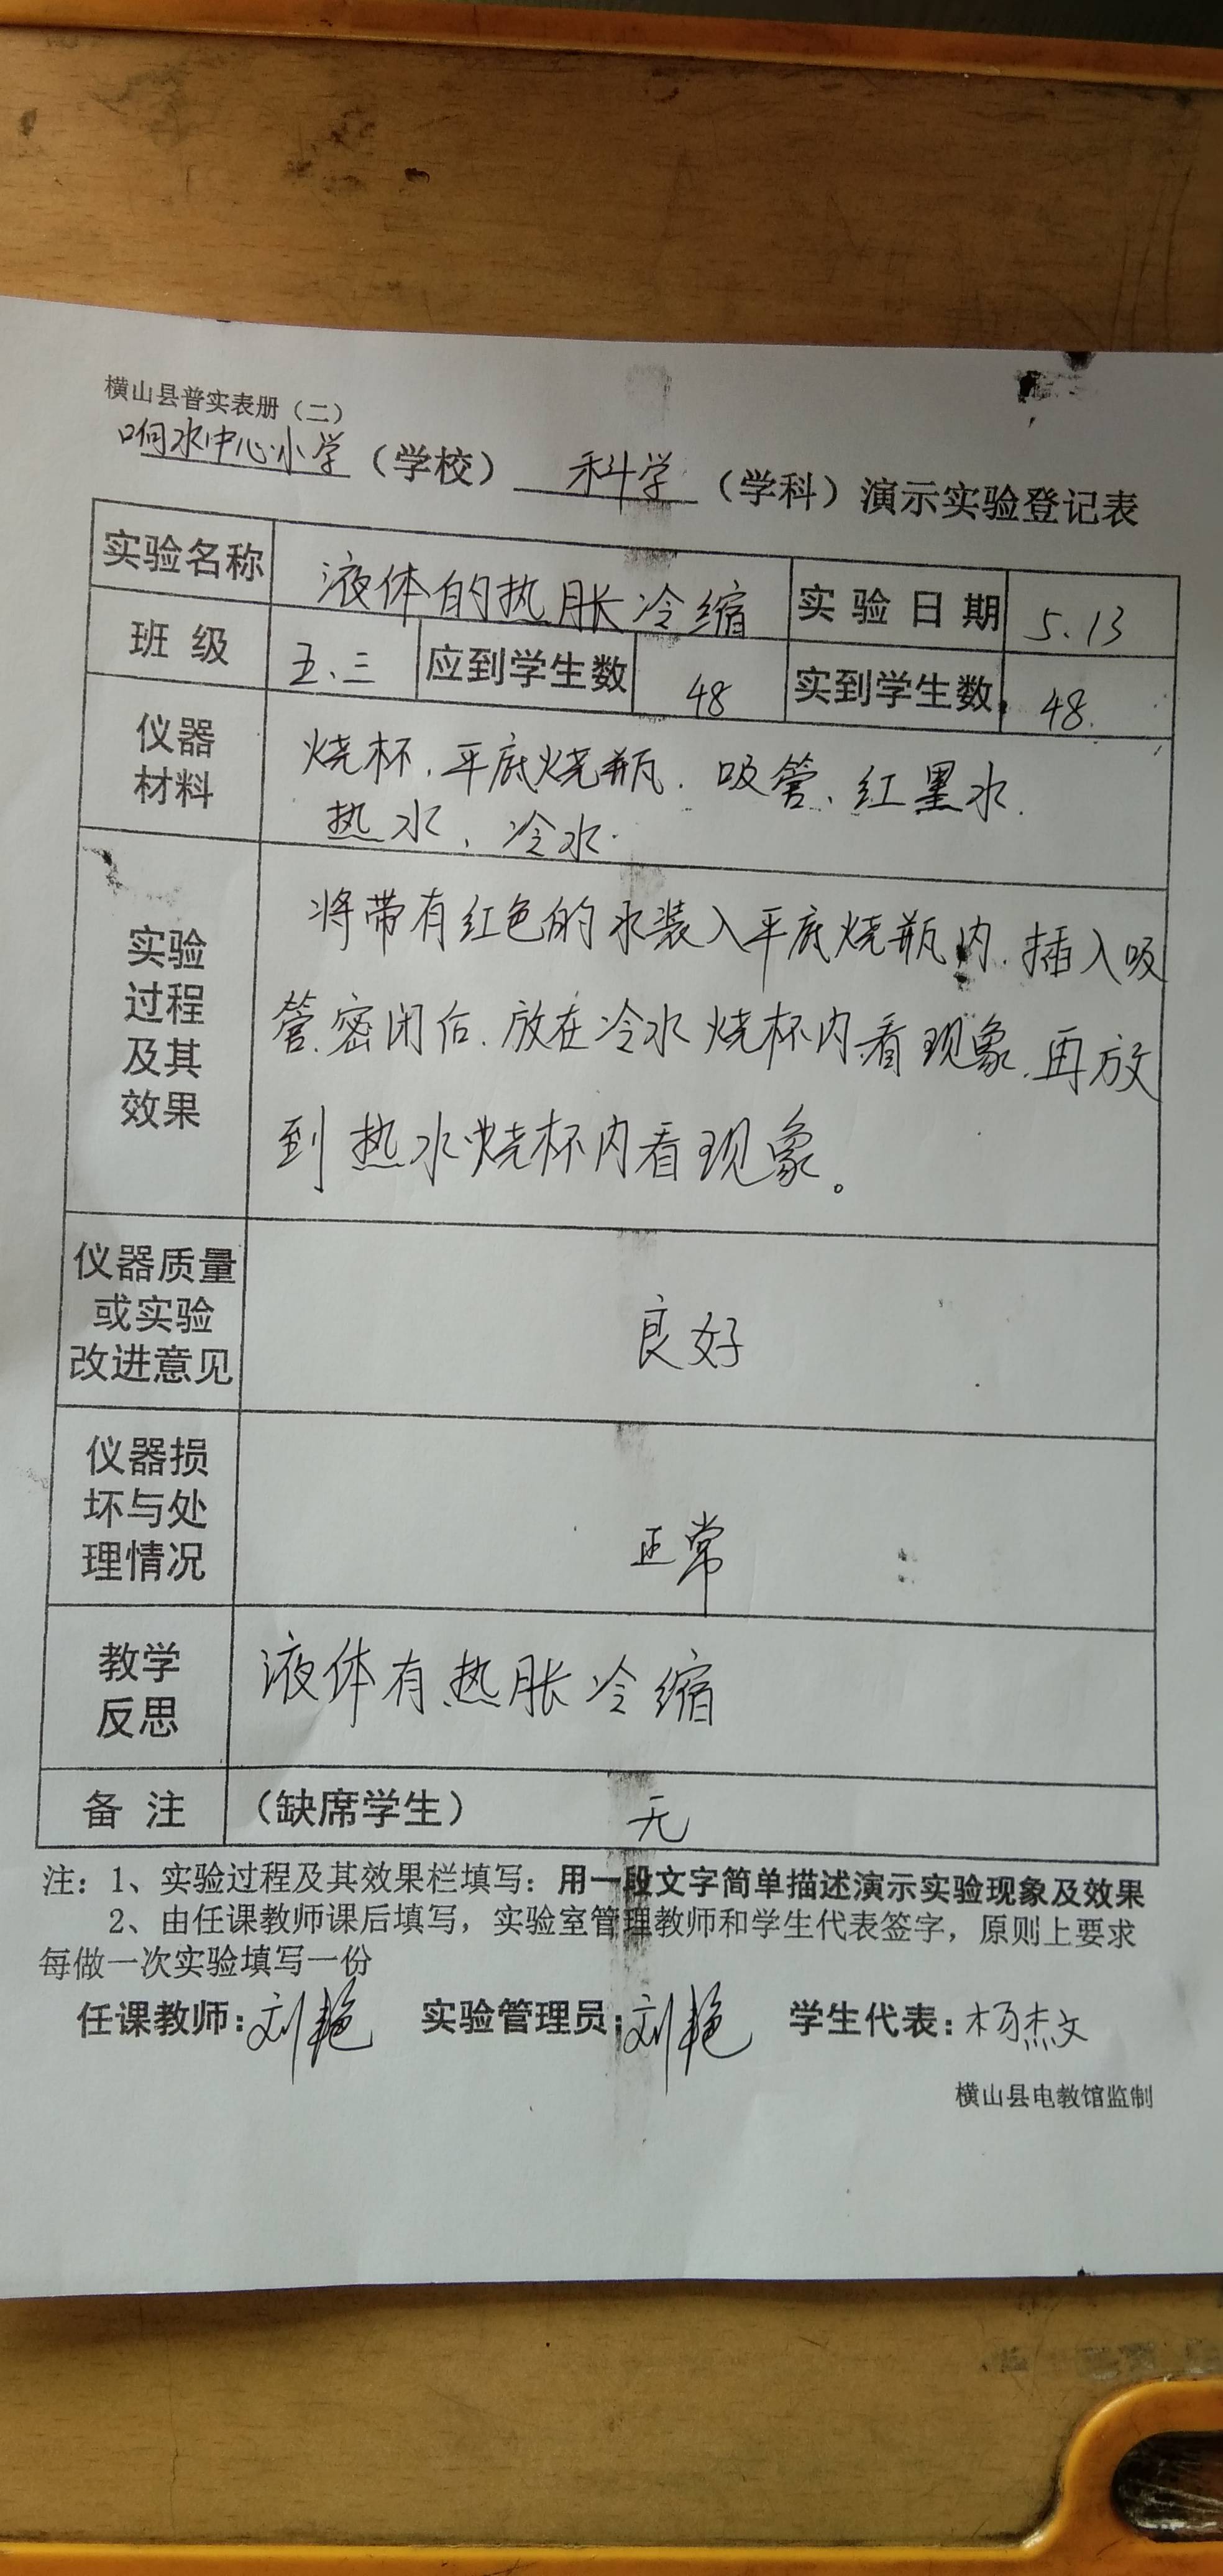 横山县普实表册（二）
响水中心小学（学校） 科学 （学科）演示实验登记表
实验名称 液体的热胀冷缩 实验日期 5.13
班级 五.三 应到学生数 48 实到学生数 48.
仪器材料 烧杯.平底烧瓶.吸管、红黑水.
热水、冷水.
实验过程及其效果
将带有红色的水装入平底烧瓶内.插入吸
管.密闭后.放在冷水烧杯内看现象.再放
到热水烧杯内看现象。
仪器质量或实验改进意见 良好
仪器损坏与处理情况 正常
教学反思 液体有热胀冷缩
备注 （缺席学生） 无
注：1、实验过程及其效果栏填写：用一段文字简单描述演示实验现象及效果
2、由任课教师课后填写，实验室管理教师和学生代表签字，原则上要求
每做一次实验填写一份
任课教师：刘艳 实验管理员：刘艳 学生代表：杨杰文
横山县电教馆监制